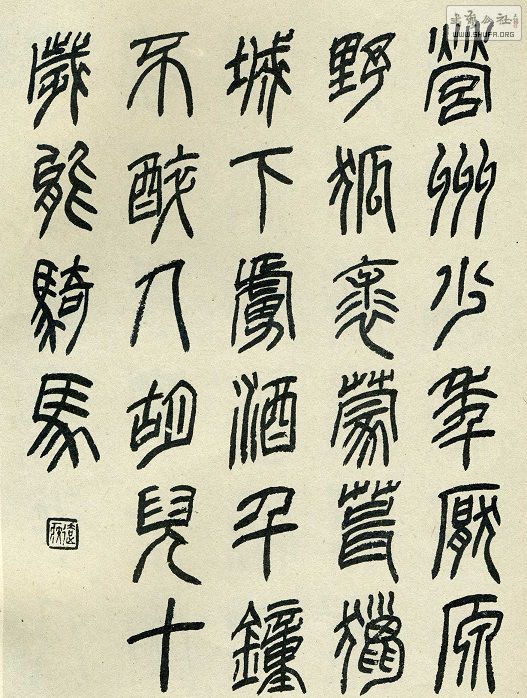 營州少年厭原
野狐裘蒙茸獵
城下虜酒千鐘
不醉人胡兒十
歲能騎馬
WWW.SHUFA.ORG